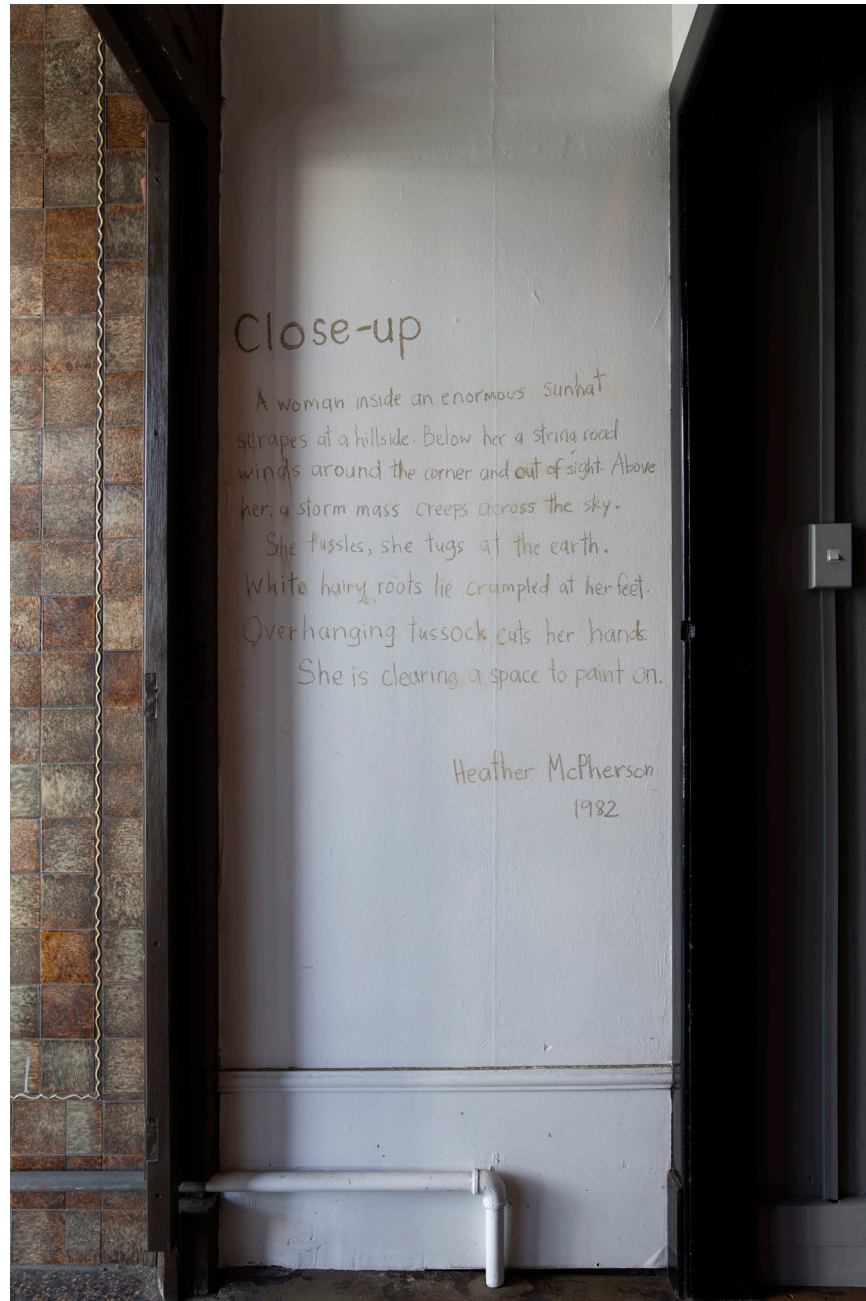 Close-up
A woman inside an enormous sunhat
scrapes at a hillside. Below her a string road
winds around the corner and out of sight. Above
her, a storm mass creeps across the sky.
She tussles, she tugs at the earth.
White hairy roots lie crumpled at her feet.
Overhanging tussock cuts her hands
She is clearing a space to paint on.
Heather McPherson
1982